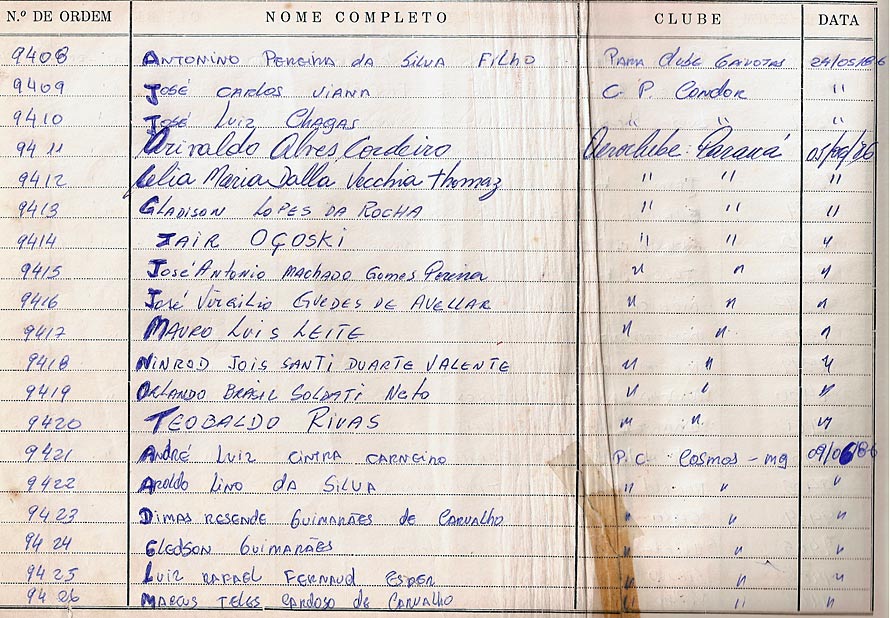 N.º DE ORDEM NOME COMPLETO CLUBE DATA
9408 ANTONINO PEREIRA da SILVA FILHO PARA CLUBE GAIVOTAS 24/05/86
9409 JOSÉ CARLOS VIANA C. P. CONDOR "
9410 JOSÉ LUIZ CHAGAS " " "
9411 Orivaldo Alves Cordeiro Aeroclube: Paraná 05/06/86
9412 Célia Maria Dalla Vecchia Thomaz " " "
9413 GLADISON LOPES DA ROCHA " " "
9414 JAIR OÇOSKI " " "
9415 JOSÉ ANTONIO MACHADO GOMES Pereira " " "
9416 JOSÉ VIRGILIO GUEDES DE AVELLAR " " "
9417 MAURO LUIS LEITE " " "
9418 NINROD JOIS SANTI DUARTE VALENTE " " "
9419 ORLANDO BRASIL SOLDATI Neto " " "
9420 TEOBALDO RIVAS " " "
9421 ANDRÉ LUIZ CINTRA CARNEIRO P.C. COSMOS - MG 09/06/86
9422 AROLDO LINO DA SILVA " " "
9423 DIMAS RESENDE GUIMARÃES de CARVALHO " " "
9424 GLEDSON GUIMARÃES " "
9425 LUIZ RAFAEL FERNAUD ESPER " " "
9426 MARCUS TELES CARDOSO de CARVALHO " " "